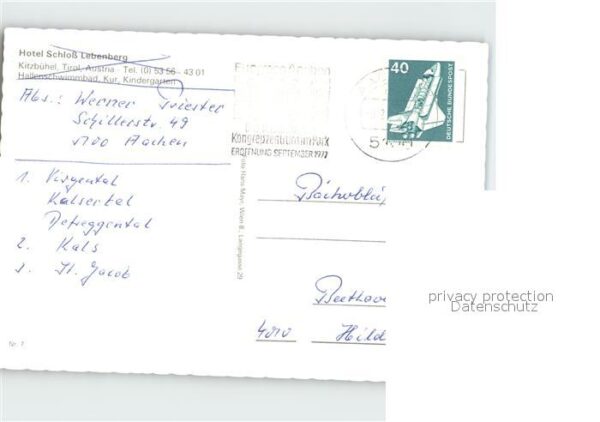 Hotel Schloß Lebenberg
Kitzbühel, Tirol, Austria Tel. (0) 53 56 - 43 01
Hallenschwimmbad, Kur, Kindergarten
Abs.: Werner
Schillerstr. 49
5100 Aachen
1. Virgental
Kalsertal
Defreggental
2. Kals
3. St. Jacob
Kongreßzentrum
ERÖFFNUNG SEPTEMBER 1977
40
DEUTSCHE BUNDESPOST
Hans Mayr, Wien 8., Langegasse 29
Beethov
4010 Hild
Nr. 7
privacy protection
Datenschutz